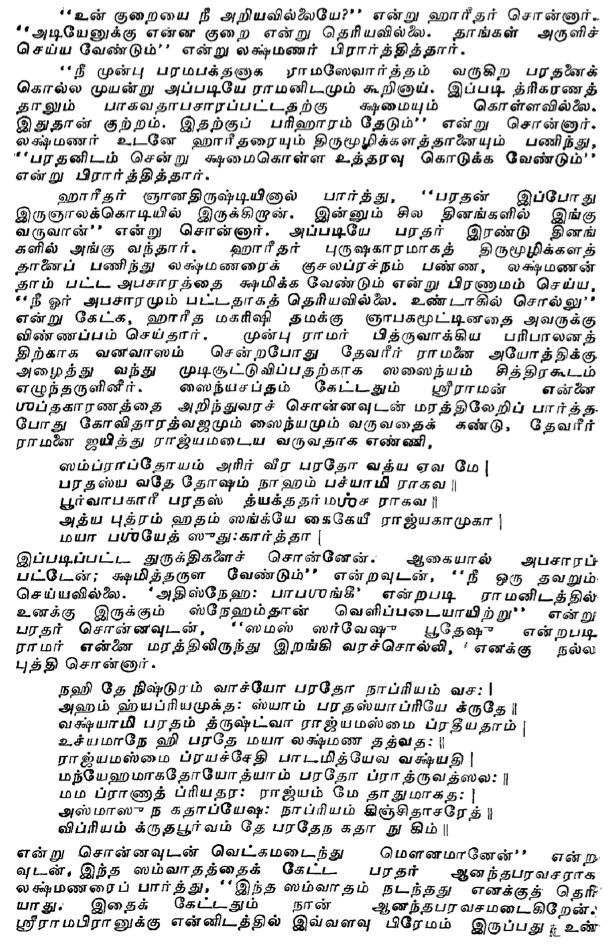 “உன் குறையை நீ அறியவில்லையே?” என்று ஹாரீதர் சொன்னார்.
“அடியேனுக்கு என்ன குறை என்று தெரியவில்லை. தாங்கள் அருளிச்
செய்ய வேண்டும்” என்று லக்ஷ்மணர் பிரார்த்தித்தார்.
“நீ முன்பு பரமபக்தனாக ராமஸேவார்த்தம் வருகிற பரதனைக்
கொல்ல முயன்று அப்படியே ராமனிடமும் கூறினாய். இப்படி த்ரிகரணத்
தாலும் பாகவதாபசாரப்பட்டதற்கு க்ஷமையும் கொள்ளவில்லை.
இதுதான் குற்றம். இதற்குப் பரிஹாரம் தேடும்” என்று சொன்னார்.
லக்ஷ்மணர் உடனே ஹாரீதரையும் திருமூழிக்களத்தானையும் பணிந்து,
“பரதனிடம் சென்று க்ஷமைகொள்ள உத்தரவு கொடுக்க வேண்டும்”
என்று பிரார்த்தித்தார்.
ஹாரீதர் ஞானதிருஷ்டியினால் பார்த்து, “பரதன் இப்போது
இருஞாலக்கொடியில் இருக்கிறான். இன்னும் சில தினங்களில் இங்கு
வருவான்” என்று சொன்னார். அப்படியே பரதர் இரண்டு தினங்
களில் அங்கு வந்தார். ஹாரீதர் புருஷகாரமாகத் திருமூழிக்களத்
தானைப் பணிந்து லக்ஷ்மணரைக் குசலப்ரச்நம் பண்ண, லக்ஷ்மணன்
தாம் பட்ட அபசாரத்தை க்ஷமிக்க வேண்டும் என்று பிரணாமம் செய்ய,
“நீ ஓர் அபசாரமும் பட்டதாகத் தெரியவில்லை. உண்டாகில் சொல்லு”
என்று கேட்க, ஹாரீத மகரிஷி தமக்கு ஞாபகமூட்டினதை அவருக்கு
விண்ணப்பம் செய்தார். முன்பு ராமர் பித்ருவாக்கிய பரிபாலனத்
திற்காக வனவாஸம் சென்றபோது தேவரீர் ராமனை அயோத்திக்கு
அழைத்து வந்து முடிசூட்டுவிப்பதற்காக ஸஸைந்யம் சித்திரகூடம்
எழுந்தருளினீர். ஸைந்யசப்தம் கேட்டதும் ஸ்ரீராமன் என்னை
ஶப்தகாரணத்தை அறிந்துவரச் சொன்னவுடன் மரத்திலேறிப் பார்த்த
போது கோவிதாரத்வஜமும் ஸைந்யமும் வருவதைக் கண்டு, தேவரீர்
ராமனை ஜயித்து ராஜ்யமடைய வருவதாக எண்ணி,
ஸம்ப்ராப்தோயம் அரிர் வீர பரதோ வத்ய ஏவ மே |
பரதஸ்ய வதே தோஷம் நாஹம் பச்யாமி ராகவ ||
பூர்வாபகாரீ பரதஸ் த்யக்ததர்மஶ்ச ராகவ ||
அத்ய புத்ரம் ஹதம் ஸங்க்யே கைகேயீ ராஜ்யகாமுகா |
மயா பஶ்யேத் ஸுது:கார்த்தா |
இப்படிப்பட்ட துருக்திகளைச் சொன்னேன். ஆகையால் அபசாரப்
பட்டேன்; க்ஷமித்தருள வேண்டும்” என்றவுடன், “நீ ஒரு தவறும்
செய்யவில்லை. ‘அதிஸ்நேஹ: பாபஶங்கீ’ என்றபடி ராமனிடத்தில்
உனக்கு இருக்கும் ஸ்நேஹம்தான் வெளிப்படையாயிற்று” என்று
பரதர் சொன்னவுடன், “ஸமஸ் ஸர்வேஷு பூதேஷு என்றபடி
ராமர் என்னை மரத்திலிருந்து இறங்கி வரச்சொல்லி, எனக்கு நல்ல
புத்தி சொன்னார்.
நஹி தே நிஷ்டுரம் வாச்யோ பரதோ நாப்ரியம் வச: |
அஹம் ஹ்யப்ரியமுக்த: ஸ்யாம் பரதஸ்யாப்ரியே க்ருதே ||
வக்ஷ்யாமி பரதம் த்ருஷ்ட்வா ராஜ்யமஸ்மை ப்ரதீயதாம் |
உச்யமாநே ஹி பரதே மயா லக்ஷ்மண தத்வத: ||
ராஜ்யமஸ்மை ப்ரயச்சேதி பாடமித்யேவ வக்ஷ்யதி |
மந்யேஹமாகதோயோத்யாம் பரதோ ப்ராத்ருவத்ஸல: ||
மம ப்ராணாத் ப்ரியதர: ராஜ்யம் மே தாதுமாகத: |
அஸ்மாஸு ந கதாப்யேஷ: நாப்ரியம் கிஞ்சிதாசரேத் ||
விப்ரியம் க்ருதபூர்வம் தே பரதேந கதா நு கிம் ||
என்று சொன்னவுடன் வெட்கமடைந்து மௌனமானேன்” என்ற
வுடன், இந்த ஸம்வாதத்தைக் கேட்ட பரதர் ஆனந்தபரவசராக
லக்ஷ்மணரைப் பார்த்து, “இந்த ஸம்வாதம் நடந்தது எனக்குத் தெரி
யாது. இதைக் கேட்டதும் நான் ஆனந்தபரவசமடைகிறேன்.
ஸ்ரீராமபிரானுக்கு என்னிடத்தில் இவ்வளவு பிரேமம் இருப்பது உன்